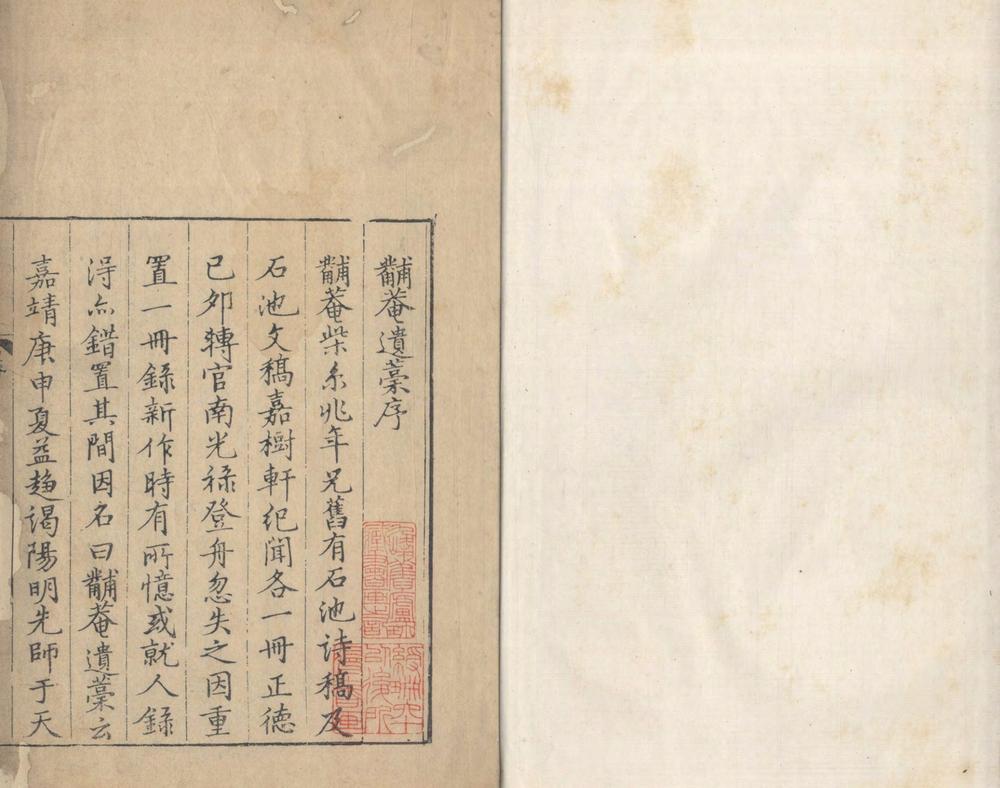 黼菴遺藁序
黼菴柴糸兆年兄舊有石池詩稿及
石池文稿嘉樹軒紀聞各一冊正德
已夘轉官南光禄登舟忽失之因重
置一冊録新作時有所憶或就人録
淂亦錯置其間因名曰黼菴遺藁云
嘉靖庚申夏益趋谒陽明先師于天